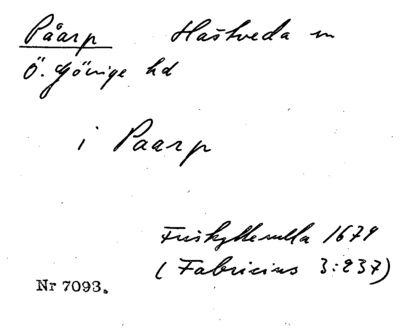 Påarp Hästveda sn
Ö. Göinge hd
i Paarp
Friskytterulla 1679
(Fabricius 3:237)
Nr 7093.